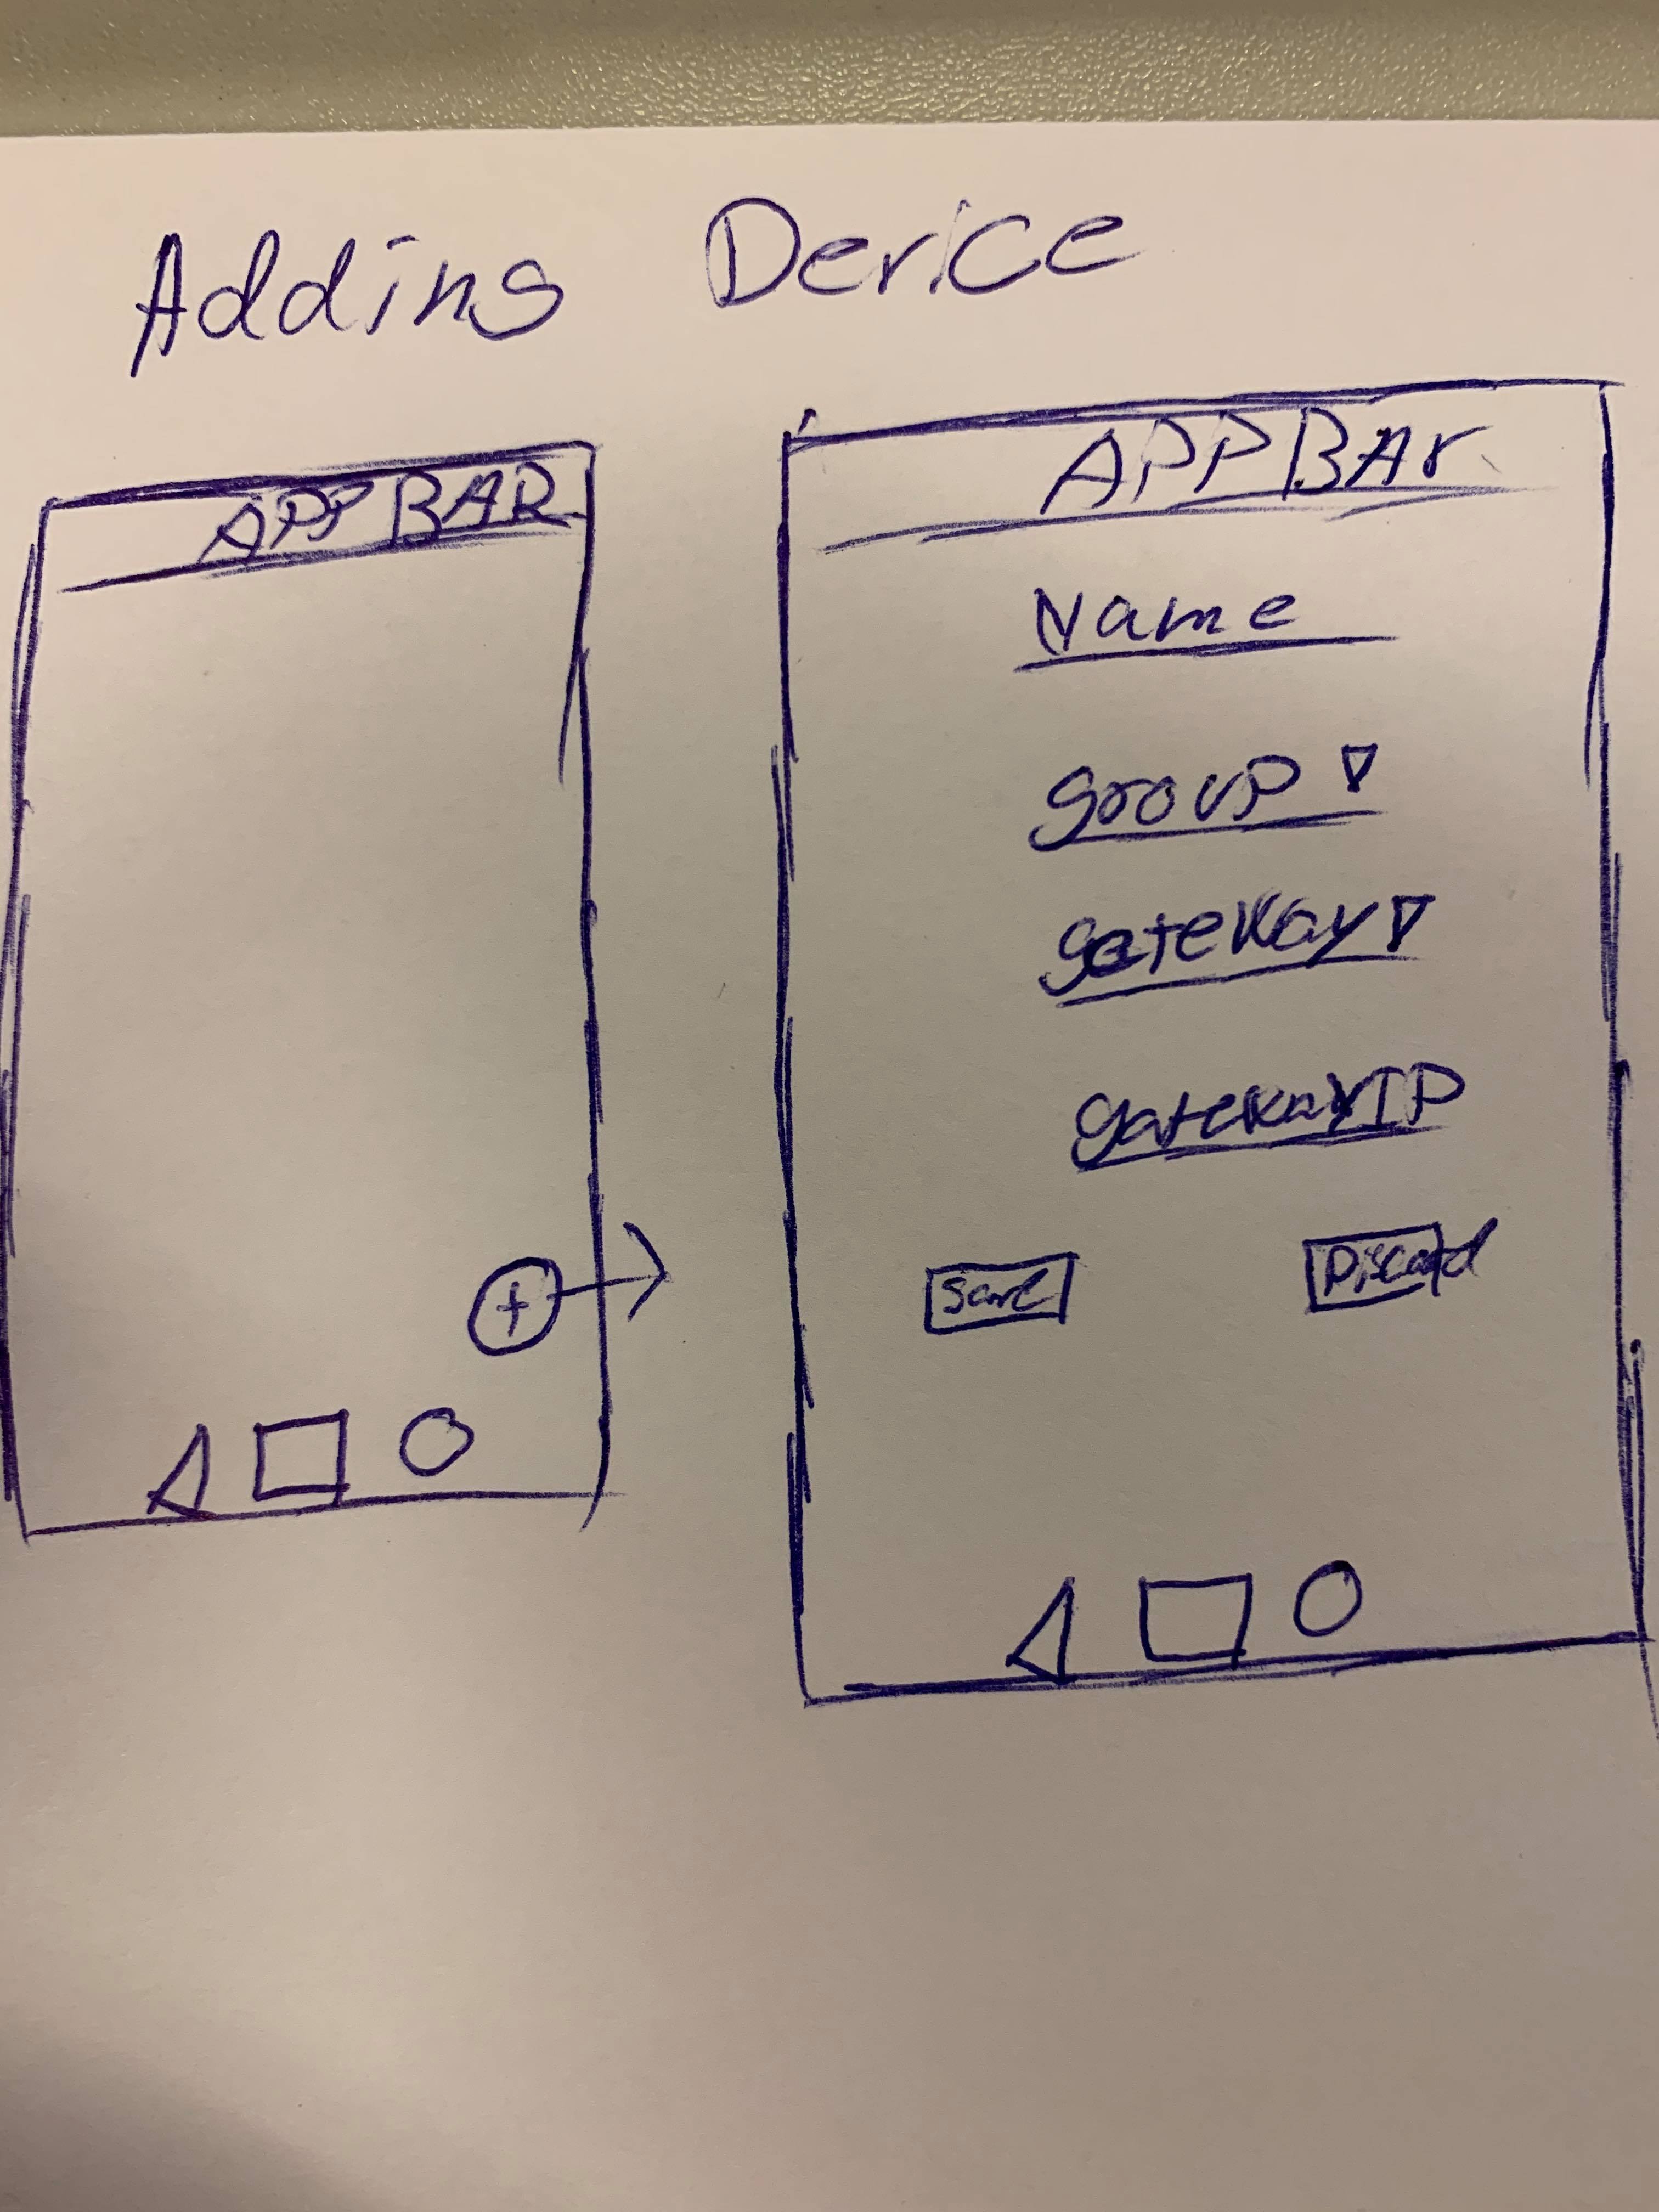 Adding Device
APP BAR
+
APP BAr
Name
Group
gateway
gatewayIP
Save
Discard